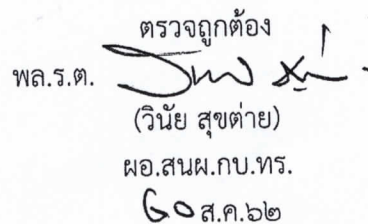 ตรวจถูกต้อง
พล.ร.ต.
(วินัย สุขต่าย)
ผอ.สนผ.กบ.ทร.
ส.ค.๖๒